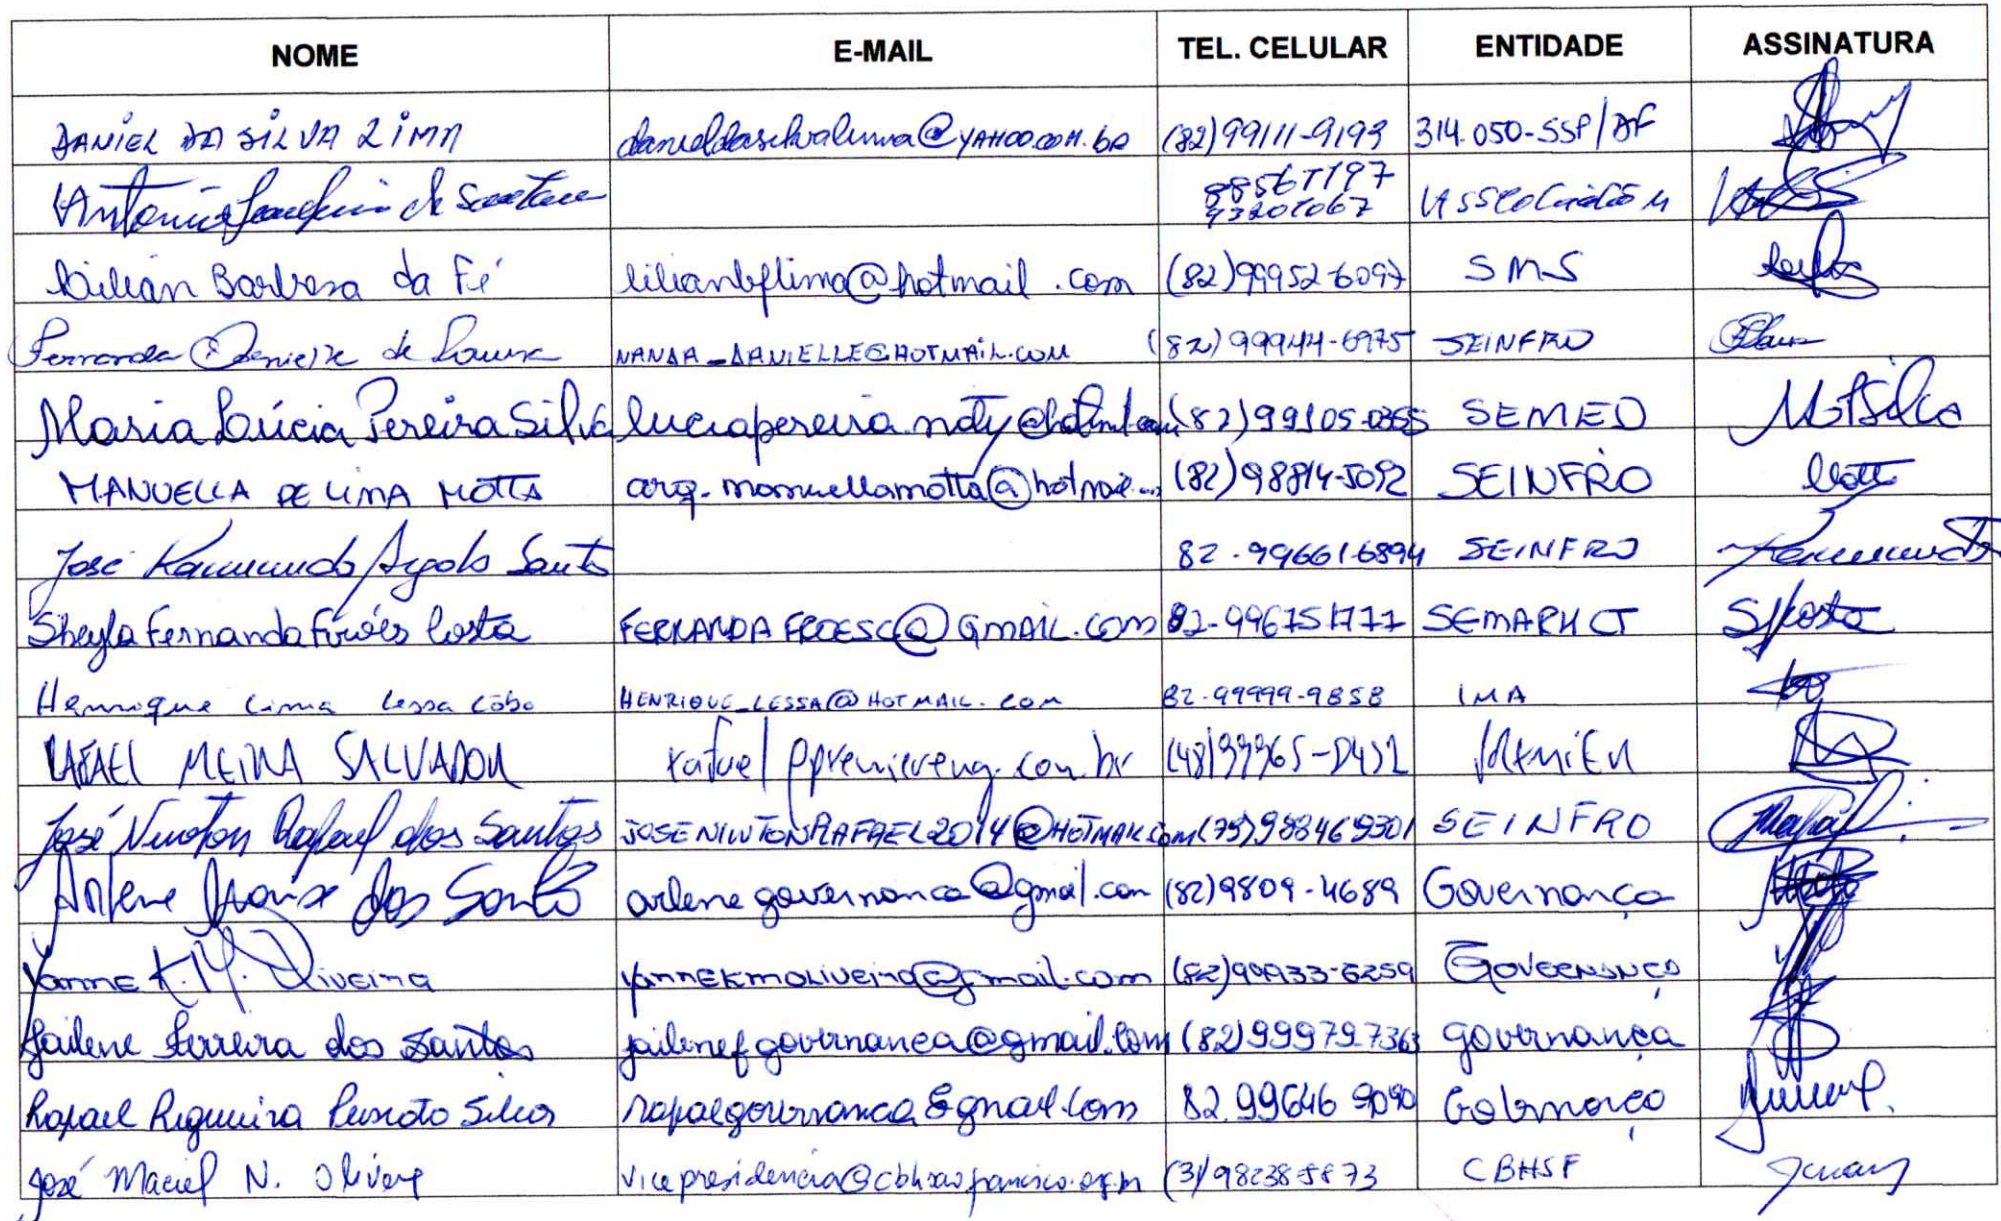 NOME E-MAIL TEL. CELULAR ENTIDADE ASSINATURA
DANIEL DA SILVA LIMA danieldasilvalima@YAHOO.COM.BR (82)99111-9199 314.050-SSP/DF
Antonio Joaquim de Santana 88567197
93201067
Lilian Barbosa da Fé lilianbflima@hotmail.com (82)99952-6097 SMS
Fernanda Danielle de Souza NANDA_DANIELLE@HOTMAIL.COM (82)99944-6975 SEINFRO
Maria Lúcia Pereira Silva luciapereira.ndty@hotmail.com (82)99105-0355 SEMED
MANUELLA DE LIMA MOTTA arq.manuellamotta@hotmail... (82)98814-5092 SEINFRO
José Raimundo Ayalo Santos 82-996616894 SEINFRO
Sheyla Fernanda Fróes Costa FERNANDAFROESC@GMAIL.COM 82-996751777 SEMARHCT SfCosta
Henrique Lima Lessa Lôbo HENRIQUE_LESSA@HOTMAIL.COM 82-99999-9858 IMA
RAFAEL MEIRA SALVADOR rafael@premiereng.com.br (48)99965-0452 PREMIER
José Niwton Rafael dos Santos JOSENIWTONRAFAEL2014@HOTMAIL.com (75)988469301 SEINFRO
Arlene Maria dos Santos arlenegovernanca@gmail.com (82)9809-4689 Governança
Yanne K.M. Oliveira yannekmoliveira@gmail.com (82)99933-6259 Governança
Jailene Ferreira dos Santos jailenefgovernanca@gmail.com (82)999797363 governança
Rafael Rigueira Peixoto Silva rafaelgovernanca@gmail.com 82.99646 9090 Governança
José Maciel N. Oliveira vicepresidencia@cbhsaofrancisco.org.br (31)98238-5873 CBHSF